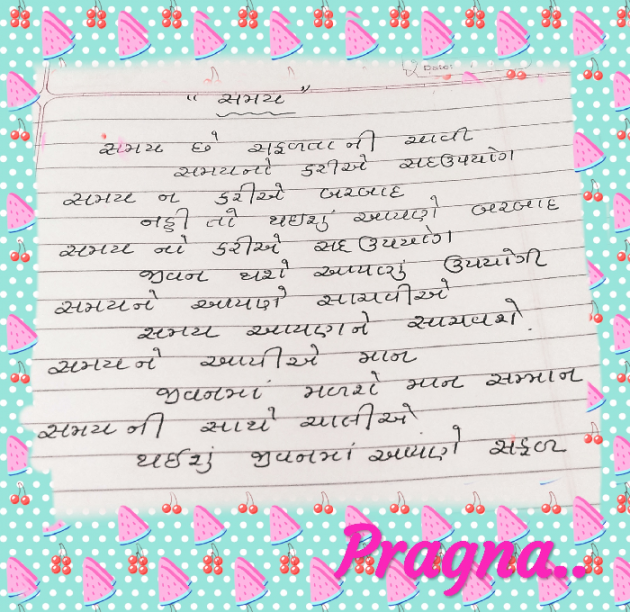 Date:
" સમય "
સમય છે સફળતા ની ચાવી
સમયનો કરીએ સદઉપયોગ
સમય ન કરીએ બરબાદ
નહી તો થઇશું આપણે બરબાદ
સમય નો કરીએ સદ ઉપયોગ
જીવન થશે આપણું ઉપયોગી
સમયને આપણે સાચવીએ
સમય આપણને સાચવશે.
સમય ને આપીએ માન
જીવનમાં મળશે માન સન્માન
સમય ની સાથે ચાલીએ
થઈશું જીવનમાં આપણે સફળ
Pragna..